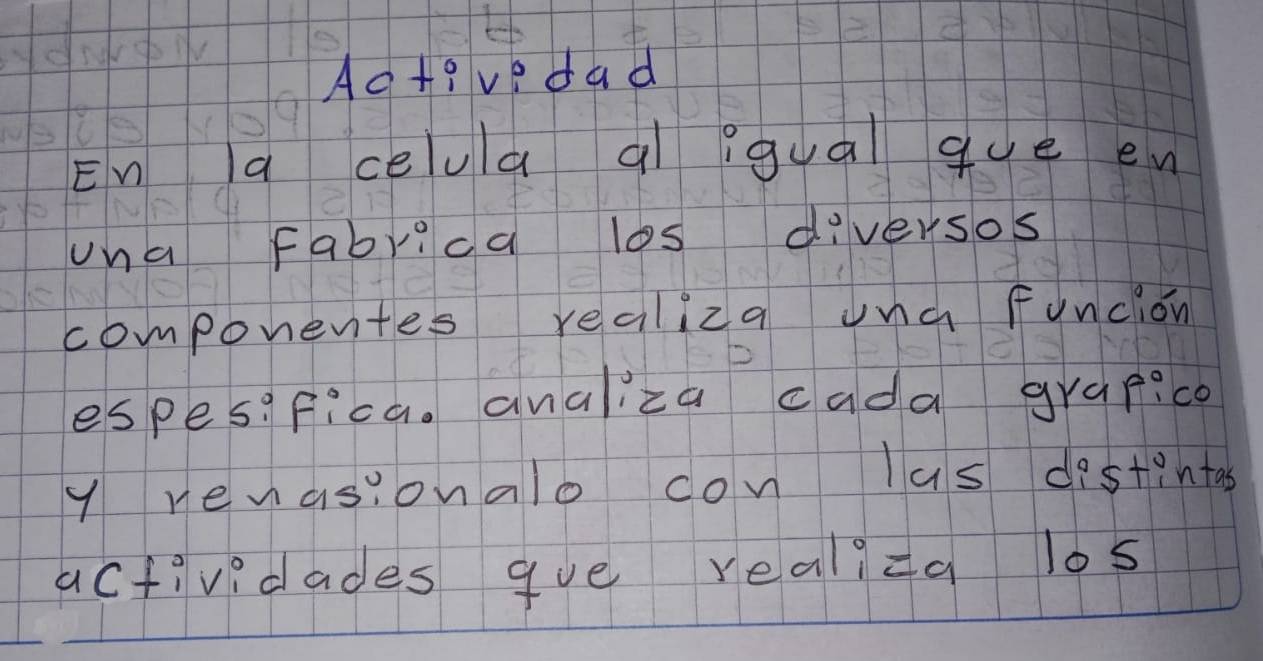 Actividad
En la celula al igual que en
una Fabrica los diversos
componentes realiza una función
espesifica. analiza cada grafico
y renasionalo con las distintas
actividades que realiza los